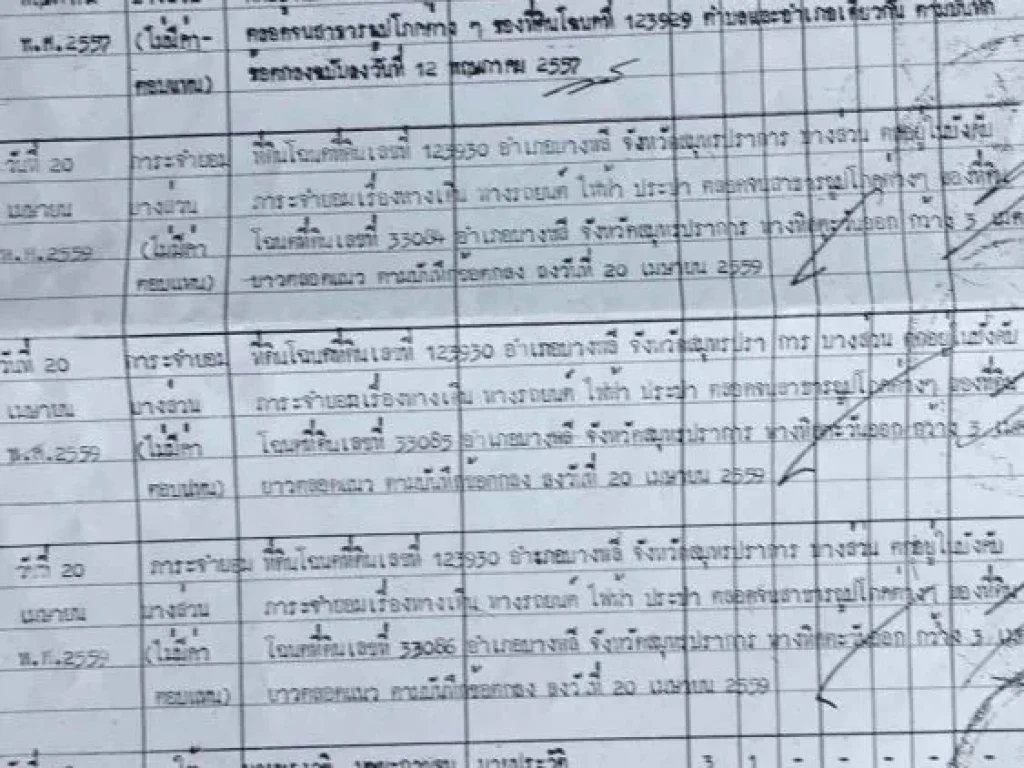 พ.ศ.2557 (ไม่มีค่า- ตลอดจนสาธารณูปโภคต่าง ๆ ของที่ดินโฉนดที่ 123929 ตำบลและอำเภอเดียวกัน ตามบันทึก
ตอบแทน) ข้อตกลงฉบับลงวันที่ 12 พฤษภาคม 2557
วันที่ 20 ภาระจำยอม ที่ดินโฉนดที่ดินเลขที่ 123930 อำเภอบางพลี จังหวัดสมุทรปราการ บางส่วน ตกอยู่ในบังคับ
เมษายน บางส่วน ภาระจำยอมเรื่องทางเดิน ทางรถยนต์ ไฟฟ้า ประปา ตลอดจนสาธารณูปโภคต่างๆ ของที่ดิน
พ.ศ.2559 (ไม่มีค่า โฉนดที่ดินเลขที่ 33084 อำเภอบางพลี จังหวัดสมุทรปราการ ทางทิศตะวันออก กว้าง 3 เมตร
ตอบแทน) ยาวตลอดแนว ตามบันทึกข้อตกลง ลงวันที่ 20 เมษายน 2559
วันที่ 20 ภาระจำยอม ที่ดินโฉนดที่ดินเลขที่ 123930 อำเภอบางพลี จังหวัดสมุทรปรา การ บางส่วน ตกอยู่ในบังคับ
เมษายน บางส่วน ภาระจำยอมเรื่องทางเดิน ทางรถยนต์ ไฟฟ้า ประปา ตลอดจนสาธารณูปโภคต่างๆ ของที่ดิน
พ.ศ.2559 (ไม่มีค่า โฉนดที่ดินเลขที่ 33085 อำเภอบางพลี จังหวัดสมุทรปราการ ทางทิศตะวันออก กว้าง 3 เมตร
ตอบแทน) ยาวตลอดแนว ตามบันทึกข้อตกลง ลงวันที่ 20 เมษายน 2559
วันที่ 20 ภาระจำยอม ที่ดินโฉนดที่ดินเลขที่ 123930 อำเภอบางพลี จังหวัดสมุทรปราการ บางส่วน ตกอยู่ในบังคับ
เมษายน บางส่วน ภาระจำยอมเรื่องทางเดิน ทางรถยนต์ ไฟฟ้า ประปา ตลอดจนสาธารณูปโภคต่างๆ ของที่ดิน
พ.ศ.2559 (ไม่มีค่า โฉนดที่ดินเลขที่ 33086 อำเภอบางพลี จังหวัดสมุทรปราการ ทางทิศตะวันออก กว้าง 3 เมตร
ตอบแทน) ยาวตลอดแนว ตามบันทึกข้อตกลง ลงวันที่ 20 เมษายน 2559
3 1 - - - - - -